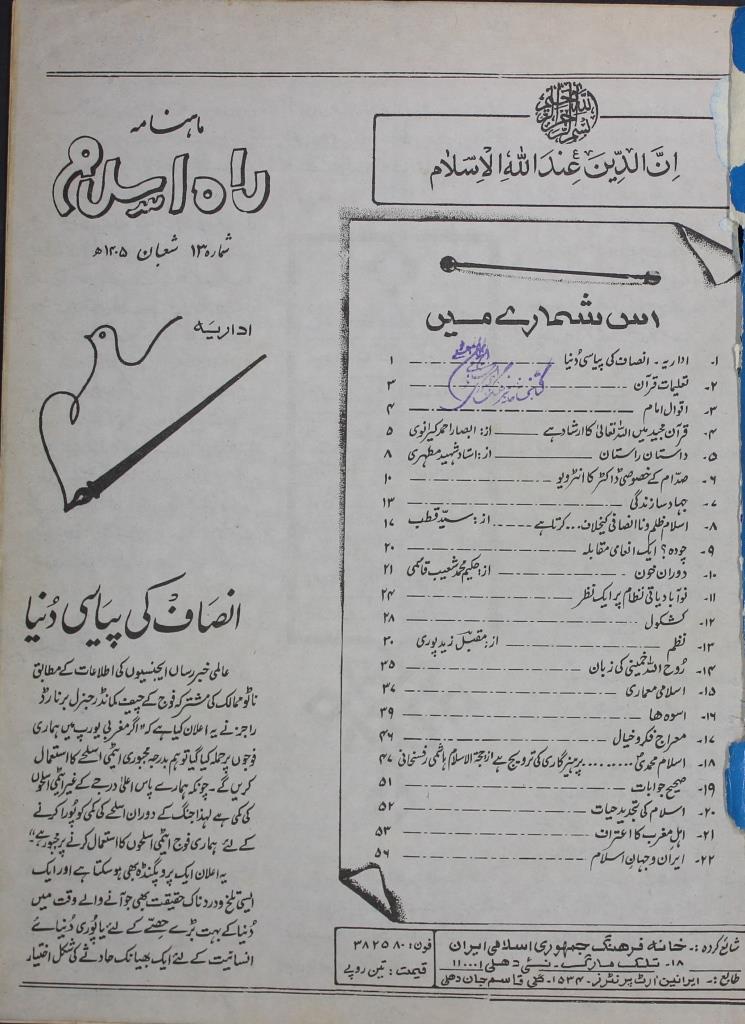 بسم الله الرحمن الرحیم
اِنَّ الدِّیْنَ عِنْدَ اللهِ الْاِسْلَام
ماہنامہ
راہ اسلام
شمارہ ۱۳ شعبان ۱۴۰۵ھ
اس شمارے میں
۱۔ اداریہ۔ انصاف کی پیاسی دُنیا ۱
۲۔ تعلیمات قرآن ۳
۳۔ اقوال امام ۴
۴۔ قرآن مجید میں اللہ تعالیٰ کا ارشاد ہے از: ابصار احمد کیرانوی ۵
۵۔ داستان راستان از: استاد شہید مطہری ۸
۶۔ صدّام کے خصوصی ڈاکٹر کا انٹرویو ۱۰
۷۔ جہاد سازندگی ۱۳
۸۔ اسلام ظلم و نا انصافی کے خلاف... کرتا ہے از: سیّد قطب ۱۷
۹۔ چودہ؟ ایک انعامی مقابلہ ۲۰
۱۰۔ دوران خون از: حکیم محمد شعیب قاسمی ۲۱
۱۱۔ نوآبادیاتی نظام پر ایک نظر ۲۴
۱۲۔ کشکول ۲۸
۱۳۔ نظم از: مقبل زیدپوری ۳۰
۱۴۔ رُوح اللہ خمینی کی زبان ۳۵
۱۵۔ اسلامی معماری ۳۷
۱۶۔ اسوہ ہا ۳۹
۱۷۔ معراج فکر و خیال ۴۶
۱۸۔ اسلام محمدیؐ ........ پرہیزگاری کی ترویج ہے از: حجۃ الاسلام ہاشمی رفسنجانی ۴۷
۱۹۔ صحیح جوابات ۵۱
۲۰۔ اسلام کی تجدید حیات ۵۲
۲۱۔ اہل مغرب کا اعتراف ۵۳
۲۲۔ ایران و جہانِ اسلام ۵۶
شائع کردہ:۔ خانہ فرہنگ جمہوری اسلامی ایران
۱۸۔ تلک مارگ۔ نئی دھلی ۱۱۰۰۰۱
طابع:۔ ایرانین آرٹ پرنٹرز۔ ۱۵۳۴۔ گلی قاسم جان دھلی
فون: ۳۸۲۵۸۰
قیمت: تین روپے
اداریہ
انصاف کی پیاسی دُنیا
عالمی خبر رساں ایجنسیوں کی اطلاعات کے مطابق
ناٹو ممالک کی مشترکہ فوج کے چیف کمانڈر جنرل برنارڈ
راجرز نے یہ اعلان کیا ہے کہ "اگر مغربی یورپ میں ہماری
فوجوں پر حملہ کیا گیا تو ہم بدرجہ مجبوری ایٹمی اسلحے کا استعمال
کریں گے۔ چونکہ ہمارے پاس اعلیٰ درجے کے غیر ایٹمی اسلحوں
کی کمی ہے لہذا جنگ کے دوران اسلحے کی کمی کو پُورا کرنے
کے لئے ہماری فوج ایٹمی اسلحوں کا استعمال کرنے پر مجبور ہے"۔
یہ اعلان ایک پروپگنڈہ بھی ہو سکتا ہے اور ایک
ایسی تلخ و دردناک حقیقت بھی جو آنے والے وقت میں
دُنیا کے بہت بڑے حصّے کے لئے یا پُوری دُنیائے
انسانیت کے لئے ایک بھیانک حادثے کی شکل اختیار